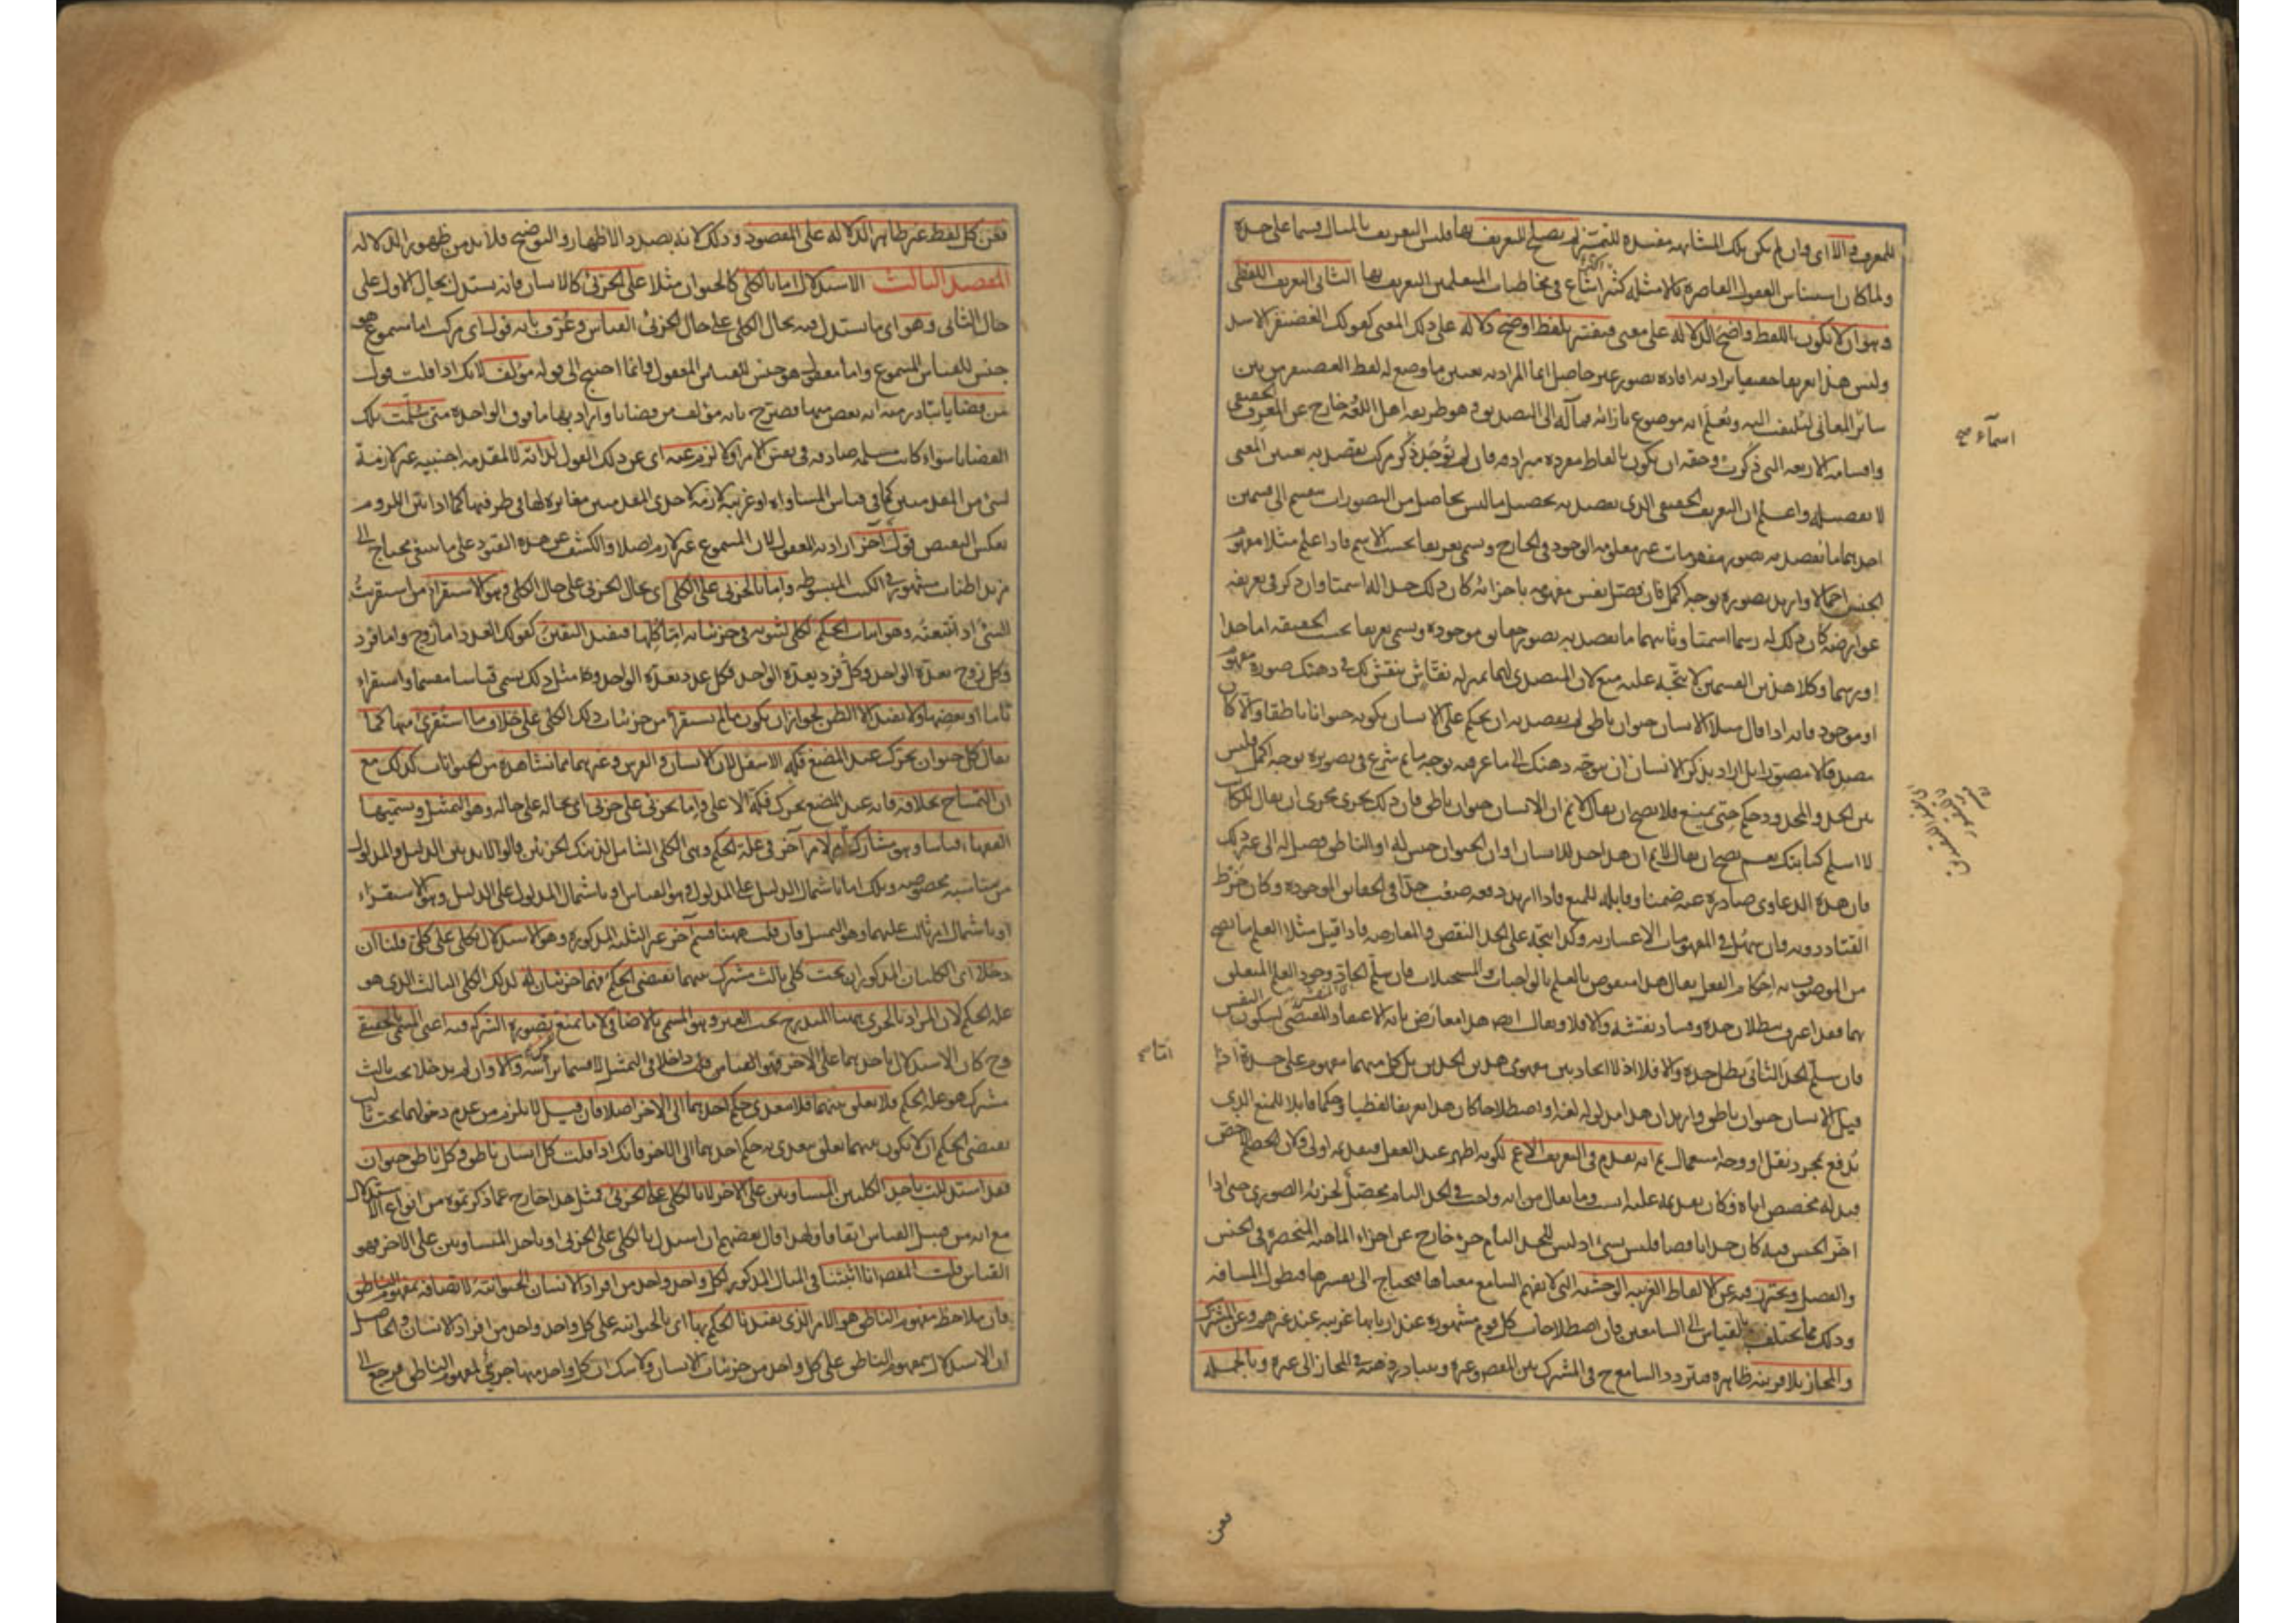 للمعرف والا اى وان لم يكن تلك المشابهة مفيدة للتميز لم يصلح للتعريف بها فليس التعريف بالمثال قسما على حدة
ولما كان استيناس العقول القاصرة بالامثلة اكثر شاع فى مخاطبات المتعلمين التعريف بها الثانى التعريف اللفظى
وهو ان لا يكون اللفظ واضح الدلالة على معنى فيفسر بلفظ اوضح دلالة على ذلك المعنى كقولك الغضنفر الاسد
وليس هذا تعريفا حقيقيا يراد به افادة تصور غير حاصل انما المراد به تعيين ما وضع له لفظ الغضنفر من بين
سائر المعانى ليلتفت اليه ويعلم انه موضوع بازائه فمآله الى التصديق وهو طريقة اهل اللغة خارج عن المعرف الحقيقى
واقسامه الاربعة التى ذكرت وحقه ان يكون بالفاظ مفردة مرادفة فان لم توجد ذكر مركب يقصد به تعيين المعنى
لا تفصيله واعلم ان التعريف الحقيقى الذى يقصد به تحصيل ما ليس بحاصل من التصورات ينقسم الى قسمين
احدهما ما يقصد به تصور مفهومات غير معلومة الوجود فى الخارج ويسمى تعريفا بحسب الاسم فاذا علم مثلا مفهوم
الجنس اجمالا واريد تصوره بوجه اكمل فان فصل نفس مفهومه باجزائه كان ذلك حدا له اسميا وان ذكر فى تعريفه
عوارضه كان ذلك له رسما اسميا وثانيهما ما يقصد به تصور حقايق موجودة ويسمى تعريفا بحسب الحقيقة اما حدا
او رسما وكلا هذين القسمين لا يتجه عليه منع لان المتصدى لهما بمنزلة نقاش ينقش لك فى ذهنك صورة مفهوم
او موجود فانه اذا قال مثلا الانسان حيوان ناطق لم يقصد به ان يحكم على الانسان بكونه حيوانا ناطقا والا لكان
مصدقا لا مصورا بل اراد بذكر الانسان ان يتوجه ذهنك الى ما عرفه بوجه ما ثم شرع فى تصويره بوجه اكمل فليس
بين الحد والمحدود حكم حتى يمنع فلا يصح ان يقال لانم ان الانسان حيوان ناطق فان ذلك يجرى مجرى ان يقال للكاتب
لا اسلم كتابتك نعم يصح ان يقال لانم ان هذا حد للانسان او ان الحيوان جنس له او الناطق فصل له الى غير ذلك
فان هذه الدعاوى صادرة عنه ضمنا وقابلة للمنع فاذا اريد دفعه صعب جدا فى الحقايق الموجودة وكان خرط
القتاد دونه وان سهل فى المفهومات الاعتبارية وكذا يتجه على الحد النقض والمعارضة فاذا قيل مثلا العلم ما يصح
من الموصوف به احكام الفعل يقال هذا منقوض بالعلم بالواجبات والمستحيلات فان سلم الحاد وجود العلم المتعلق
بهما فقد اعترف ببطلان حده وفساد نقشه والا فلا ويقال ايضا هذا معارض بانه الاعتقاد المقتضى لسكون النفس
فان سلم الحد الثانى بطل حده والا فلا اذ لا اتحاد بين مفهومى هذين الحدين بل كل منهما مفهوم على حدة اذا
قيل الانسان حيوان ناطق واريد ان هذا مدلوله لغة او اصطلاحا كان هذا تعريفا لفظيا وحكما قابلا للمنع الذى
يدفع بمجرد نقل او وجه استعمال ثم انه يقدم فى التعريف الاعم لكونه اظهر عند العقل فتقديمه اولى ولان الاخص
قيد له مخصص اياه فكان تقديمه عليه انسب وما يقال من انه واجب فى الحد التام محصل لجزئه الصورى حتى اذا
اخر الجنس فيه كان حدا ناقصا فليس بشئ اذ ليس للحد التام جزء خارج عن اجزاء الماهية المنحصرة فى الجنس
والفصل ويحترز فيه عن الالفاظ الغريبة الوحشية التى لا يفهم السامع معناها فيحتاج الى تفسيرها فيطول المسافة
وذلك مما يختلف بالقياس الى السامعين فان اصطلاحات كل قوم مشهورة عند اربابها غريبة عند غيرهم وعن المشترك
والمجاز بلا قرينة ظاهرة فيتردد السامع ح فى المشترك بين المقصود وغيره ويتبادر ذهنه فى المجاز الى غيره وبالجملة
اسماء صح
فعن
فعن كل لفظ غير ظاهر الدلالة على المقصود وذلك لانه بصدد الاظهار والتوضيح فلا بد من ظهور الدلالة
المقصد الثالث الاستدلال اما بالكلى كالحيوان مثلا على الجزئى كالانسان فانه يستدل بحال الاول على
حال الثانى وهو اى ما يستدل فيه بحال الكلى على حال الجزئى القياس وعرف بانه قول اى مركب اما مسموع هو
جنس للقياس المسموع واما معقول هو جنس للقياس المعقول وانما احتيج الى قوله مؤلف لانك اذا قلت قول
من قضايا يتبادر منه انه بعض منها فصرح بانه مؤلف من قضايا واراد بها ما فوق الواحدة متى سلمت تلك
القضايا سواء كانت مسلمة صادقة فى نفس الامر او لا لزم عنه اى عن ذلك القول لذاته لا لمقدمة اجنبية غير لازمة
لشئ من المقدمتين كما فى قياس المساواة او غريبة لازمة لاحدى المقدمتين مغايرة لها فى طرفيها كما اذا بين اللزوم
بعكس النقيض قول آخر اراد به المعقول لان المسموع غير لازم اصلا والكشف عن هذه القيود على ما ينبغى محتاج الى
مزيد اطناب مشهور فى الكتب المبسوطة واما بالجزئى على الكلى اى بحال الجزئى على حال الكلى وهو الاستقراء من استقريت
الشئ اذا تتبعته وهو اثبات الحكم لكلى لثبوته فى جزئياته اما كلها فيفيد اليقين كقولك العدد اما زوج واما فرد
وكل زوج يعده الواحد وكل فرد يعده الواحد فكل عدد يعده الواحد ومثل ذلك يسمى قياسا مقسما واستقراء
تاما او بعضها ولا يفيد الا الظن لجواز ان يكون ما لم يستقرأ من جزئيات ذلك الكلى على خلاف ما استقرئ منها كما
يقال كل حيوان يحرك عند المضغ فكه الاسفل لان الانسان والفرس وغيرهما مما نشاهده من الحيوانات كذلك مع
ان التمساح بخلافه فانه عند المضغ يحرك فكه الاعلى واما بجزئى على جزئى اى بحاله على حاله وهو التمثيل ويسميها
الفقهاء قياسا وهو مشاركة امر لامر آخر فى علة الحكم وهى الكلى الشامل لذينك الجزئيين قالوا لا بد بين الدليل والمدلول
من مناسبة مخصوصة وتلك اما باشتمال الدليل على المدلول وهو القياس او باشتمال المدلول على الدليل وهو الاستقراء
او باشتمال امر ثالث عليهما وهو التمثيل فان قلت ههنا قسم آخر غير الثلثة المذكورة وهو الاستدلال بكلى على كلى قلنا ان
دخلا اى الكليان المذكوران تحت كلى ثالث مشترك بينهما يقتضى الحكم فهما جزئيان له لذلك الكلى الثالث الذى هو
علة الحكم لان المراد بالجزئى ههنا المندرج تحت الغير وهو المسمى بالاضافى لا ما يمنع تصوره الشركة فيه اعنى المسمى بالحقيقى
وح كان الاستدلال باحدهما على الاخر داخلا فى التمثيل لا قسما برأسه والا وان لم يدخلا تحت ثالث
مشترك هو علة الحكم فلا تعلق بينهما فلا يتعدى حكم احدهما الى الاخر اصلا فان قيل لا يلزم من عدم دخولهما تحت ثالث
يقتضى الحكم ان لا يكون بينهما تعلق يتعدى به حكم احدهما الى الاخر فانك اذا قلت كل انسان ناطق وكل ناطق حيوان
فقد استدللت باحد الكليين المتساويين على الاخر لا بالكلى على الجزئى فمثل هذا خارج عما ذكرتموه من انواع الاستدلال
مع انه من قبيل القياس اتفاقا ولهذا قال بعضهم ان استدل بالكلى على الجزئى او باحد المتساويين على الاخر فهو
القياس قلت المقصد انا اثبتنا فى المثال المذكور لكل واحد واحد من افراد الانسان الحيوانية لاتصافه بمفهوم الناطق
فان ملاحظة مفهوم الناطق هو الامر الذى يفيدنا الحكم بها اى بالحيوانية على كل واحد واحد من افراد الانسان والحاصل
ان الاستدلال بمفهوم الناطق على كل واحد من جزئيات الانسان ولا شك ان كل واحد منها جزئى لمفهوم الناطق فيرجع الى